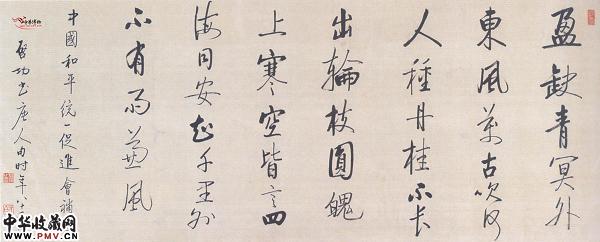 盈缺青冥外
東風萬古吹何
人種丹桂不長
出輪枝圓魄
上寒空皆言四
海同安知千里外
不有雨兼風
中國和平統一促進會補
啟功書唐人句時年八
中华收藏网
www.PMV.CN